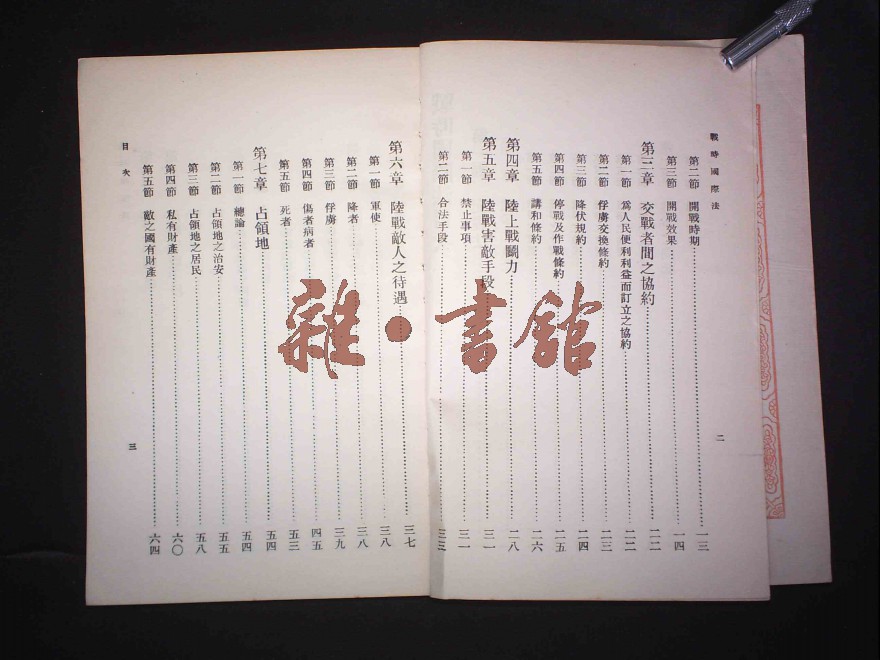 戰時國際法
第二節 開戰時期 一三
第三節 開戰效果 一四
第三章 交戰者間之協約 二二
第一節 為人民便利利益而訂立之協約 二二
第二節 俘虜交換條約 二三
第三節 降伏規約 二四
第四節 停戰及作戰條約 二五
第五節 講和條約 二六
第四章 陸上戰鬭力 二八
第五章 陸戰害敵手段 三一
第一節 禁止事項 三一
第二節 合法手段 三三
二
第六章 陸戰敵人之待遇 三七
第一節 軍使 三八
第二節 降者 三八
第三節 俘虜 三九
第四節 傷者病者 四五
第五節 死者 五三
第七章 占領地 五四
第一節 總論 五四
第二節 占領地之治安 五五
第三節 占領地之居民 五八
第四節 私有財產 六〇
第五節 敵之國有財產 六四
目次
三
雜·書館